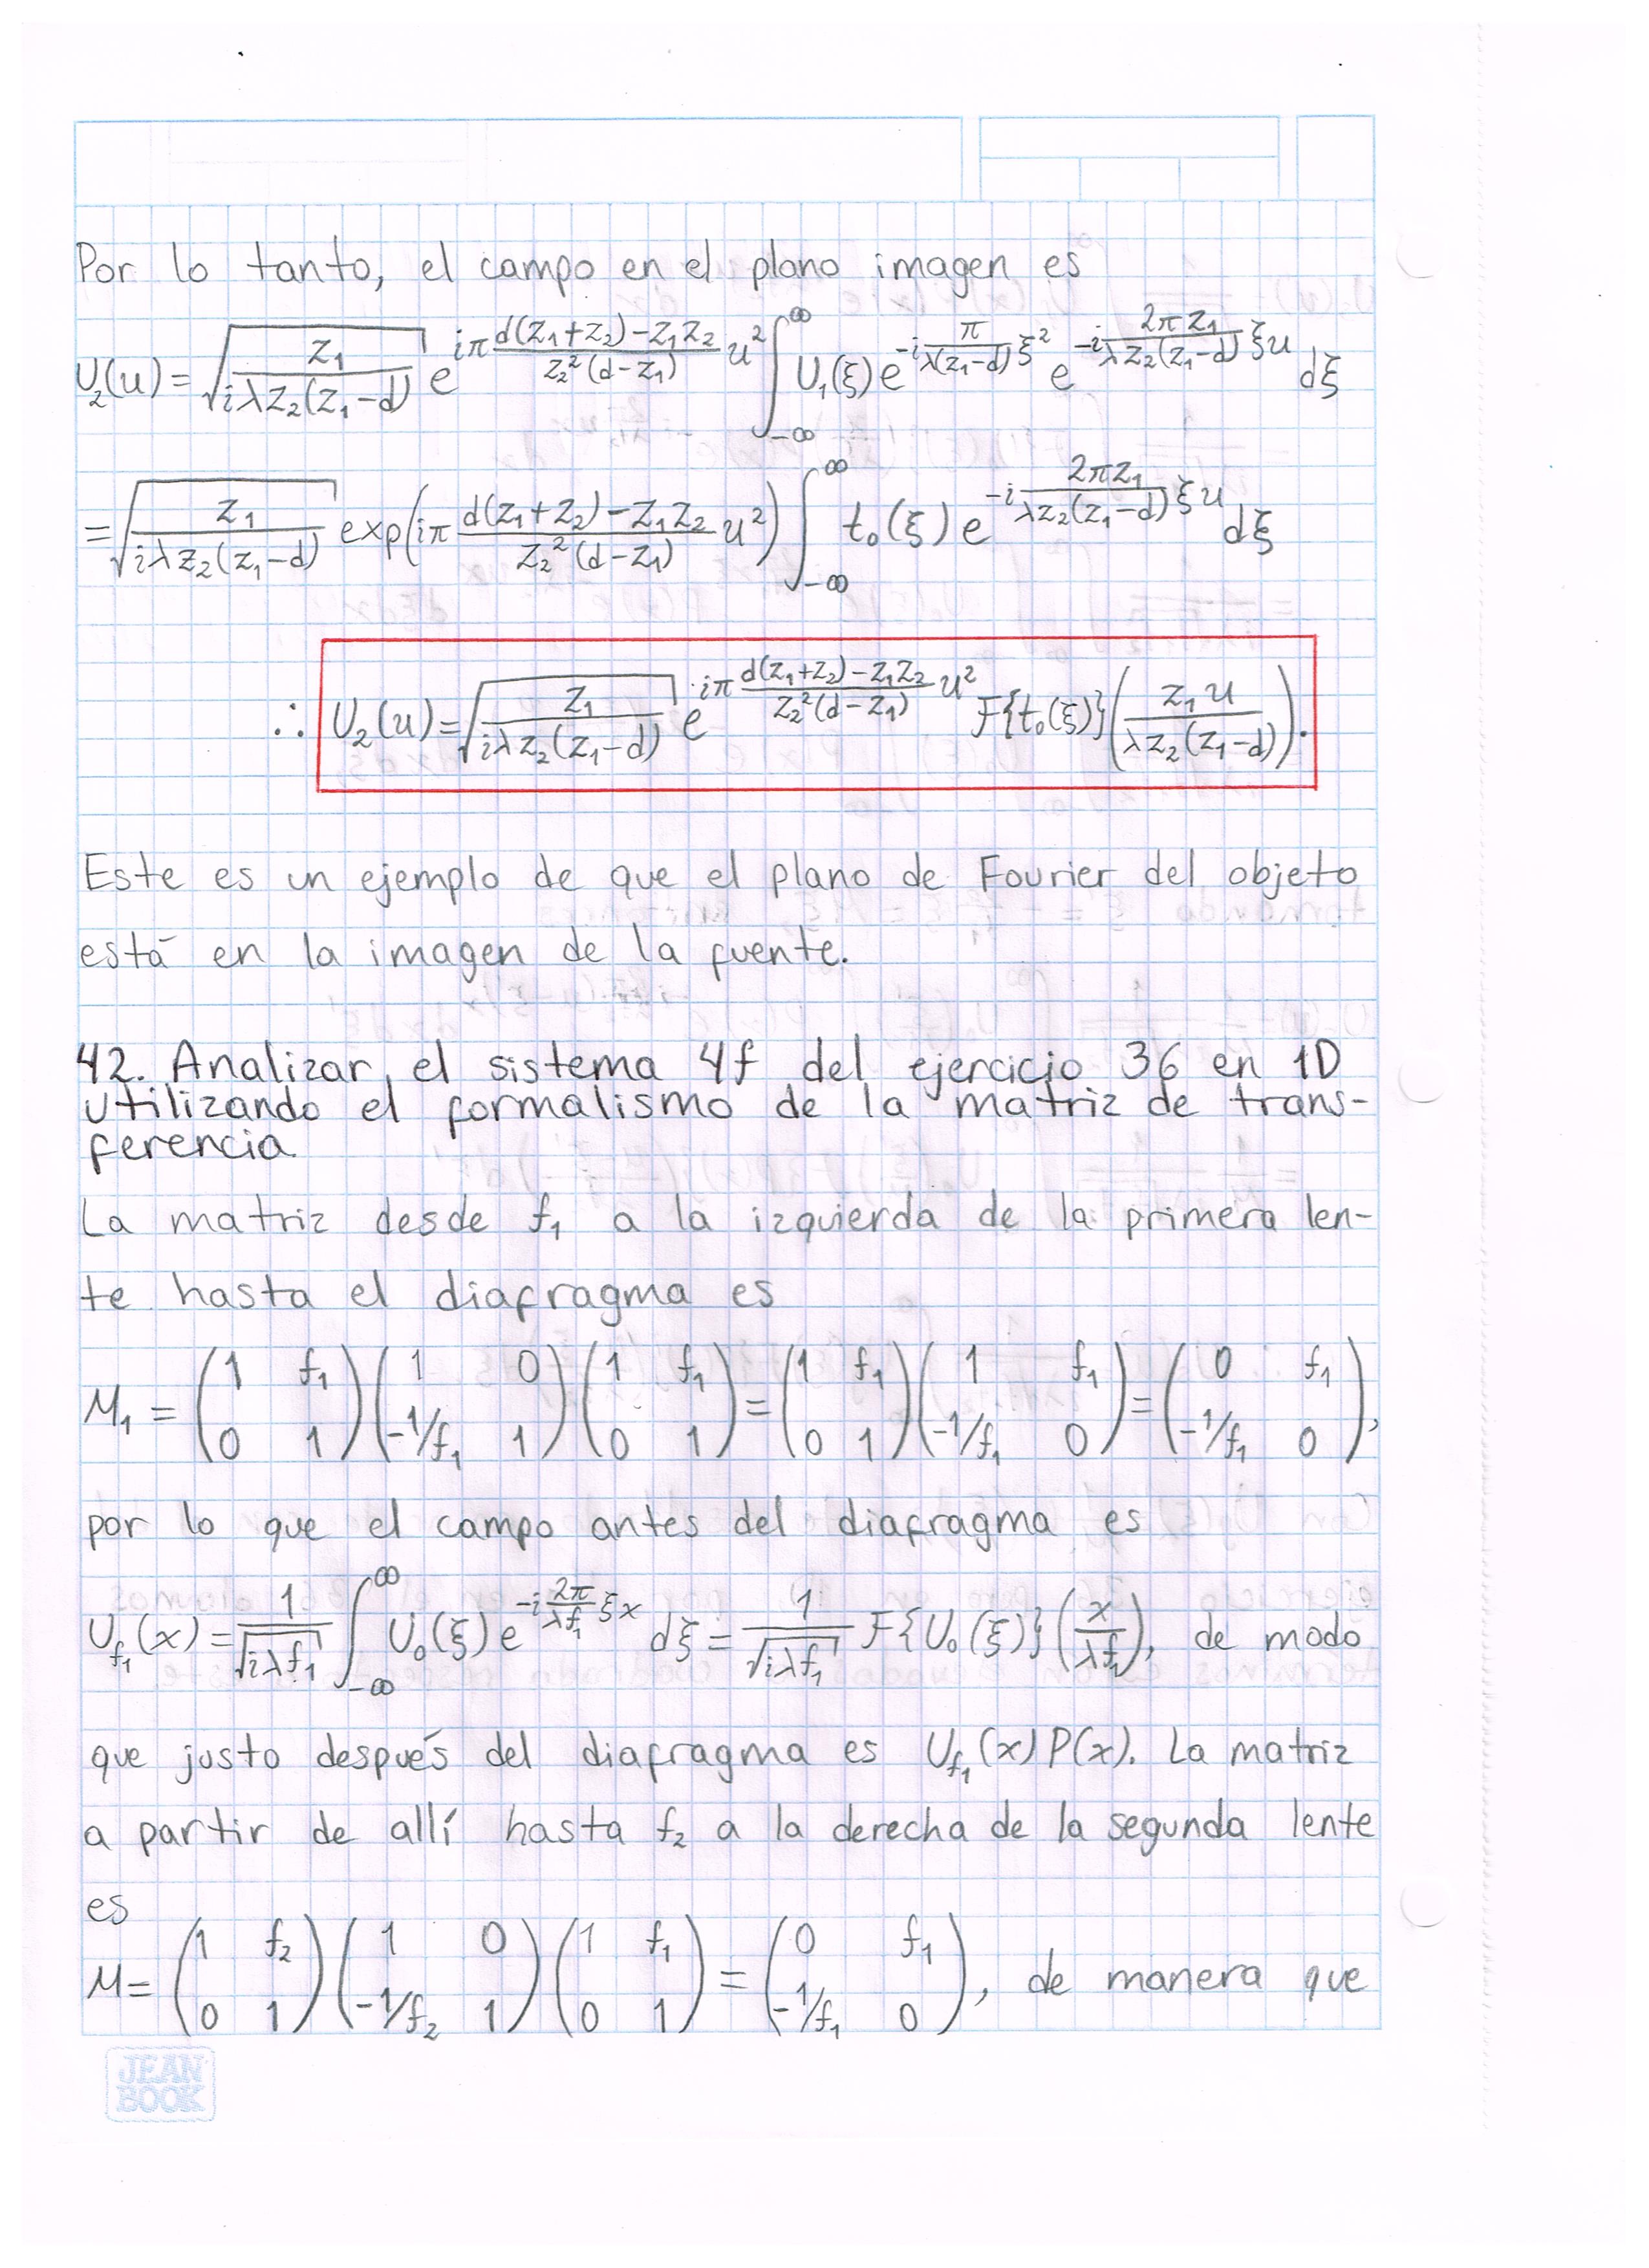 Por lo tanto, el campo en el plano imagen es
U₂(u) = √(z₁/(iλz₂(z₁-d))) e^(iπ (d(z₁+z₂)-z₁z₂)/(z₂²(d-z₁)) u²) ∫_{-∞}^{∞} U₁(ξ) e^(-i π/(λ(z₁-d)) ξ²) e^(-i 2πz₁/(λz₂(z₁-d)) ξu) dξ
= √(z₁/(iλz₂(z₁-d))) exp(iπ (d(z₁+z₂)-z₁z₂)/(z₂²(d-z₁)) u²) ∫_{-∞}^{∞} t₀(ξ) e^(-i 2πz₁/(λz₂(z₁-d)) ξu) dξ
∴ U₂(u) = √(z₁/(iλz₂(z₁-d))) e^(iπ (d(z₁+z₂)-z₁z₂)/(z₂²(d-z₁)) u²) F{t₀(ξ)}(z₁u/(λz₂(z₁-d))).
Este es un ejemplo de que el plano de Fourier del objeto
está en la imagen de la fuente.
42. Analizar el sistema 4f del ejercicio 36 en 1D
utilizando el formalismo de la matriz de trans-
ferencia.
La matriz desde f₁ a la izquierda de la primera len-
te hasta el diafragma es
M₁ = (1 f₁; 0 1)(1 0; -1/f₁ 1)(1 f₁; 0 1) = (1 f₁; 0 1)(1 f₁; -1/f₁ 0) = (0 f₁; -1/f₁ 0),
por lo que el campo antes del diafragma es
U_f₁(x) = 1/√(iλf₁) ∫_{-∞}^{∞} U₀(ξ) e^(-i 2π/(λf₁) ξx) dξ = 1/√(iλf₁) F{U₀(ξ)}(x/(λf₁)), de modo
que justo después del diafragma es U_f₁(x)P(x). La matriz
a partir de allí hasta f₂ a la derecha de la segunda lente
es
M = (1 f₂; 0 1)(1 0; -1/f₂ 1)(1 f₁; 0 1) = (0 f₁; -1/f₁ 0), de manera que
JEAN
BOOK